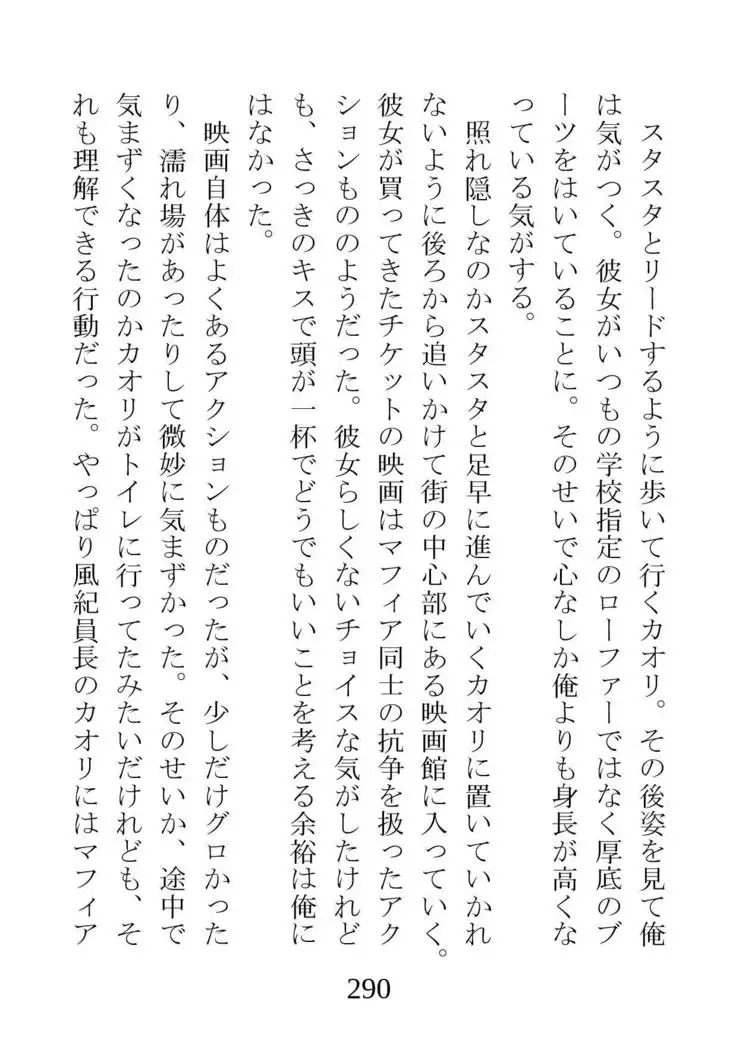 スタスタとリードするように歩いて行くカオリ。その後姿を見て俺
は気がつく。彼女がいつもの学校指定のローファーではなく厚底のブ
ーツをはいていることに。そのせいで心なしか俺よりも身長が高くな
っている気がする。
　照れ隠しなのかスタスタと足早に進んでいくカオリに置いていかれ
ないように後ろから追いかけて街の中心部にある映画館に入っていく。
彼女が買ってきたチケットの映画はマフィア同士の抗争を扱ったアク
ションもののようだった。彼女らしくないチョイスな気がしたけれど
も、さっきのキスで頭が一杯でどうでもいいことを考える余裕は俺に
はなかった。
　映画自体はよくあるアクションものだったが、少しだけグロかった
り、濡れ場があったりして微妙に気まずかった。そのせいか、途中で
気まずくなったのかカオリがトイレに行ってたみたいだけれども、そ
れも理解できる行動だった。やっぱり風紀員長のカオリにはマフィア
290